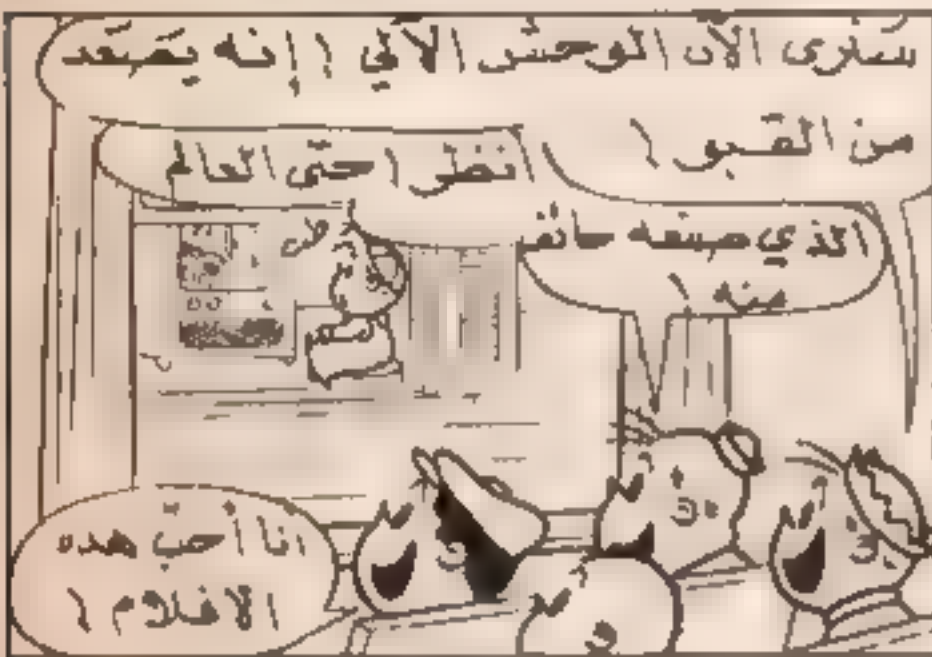 سنرى الآن الوحش الآلي ! إنه يصعد
من القبو !
انظر ! حتى العالم
الذي صنعه خائف
منه !
أنا أحبّ هذه
الافلام !